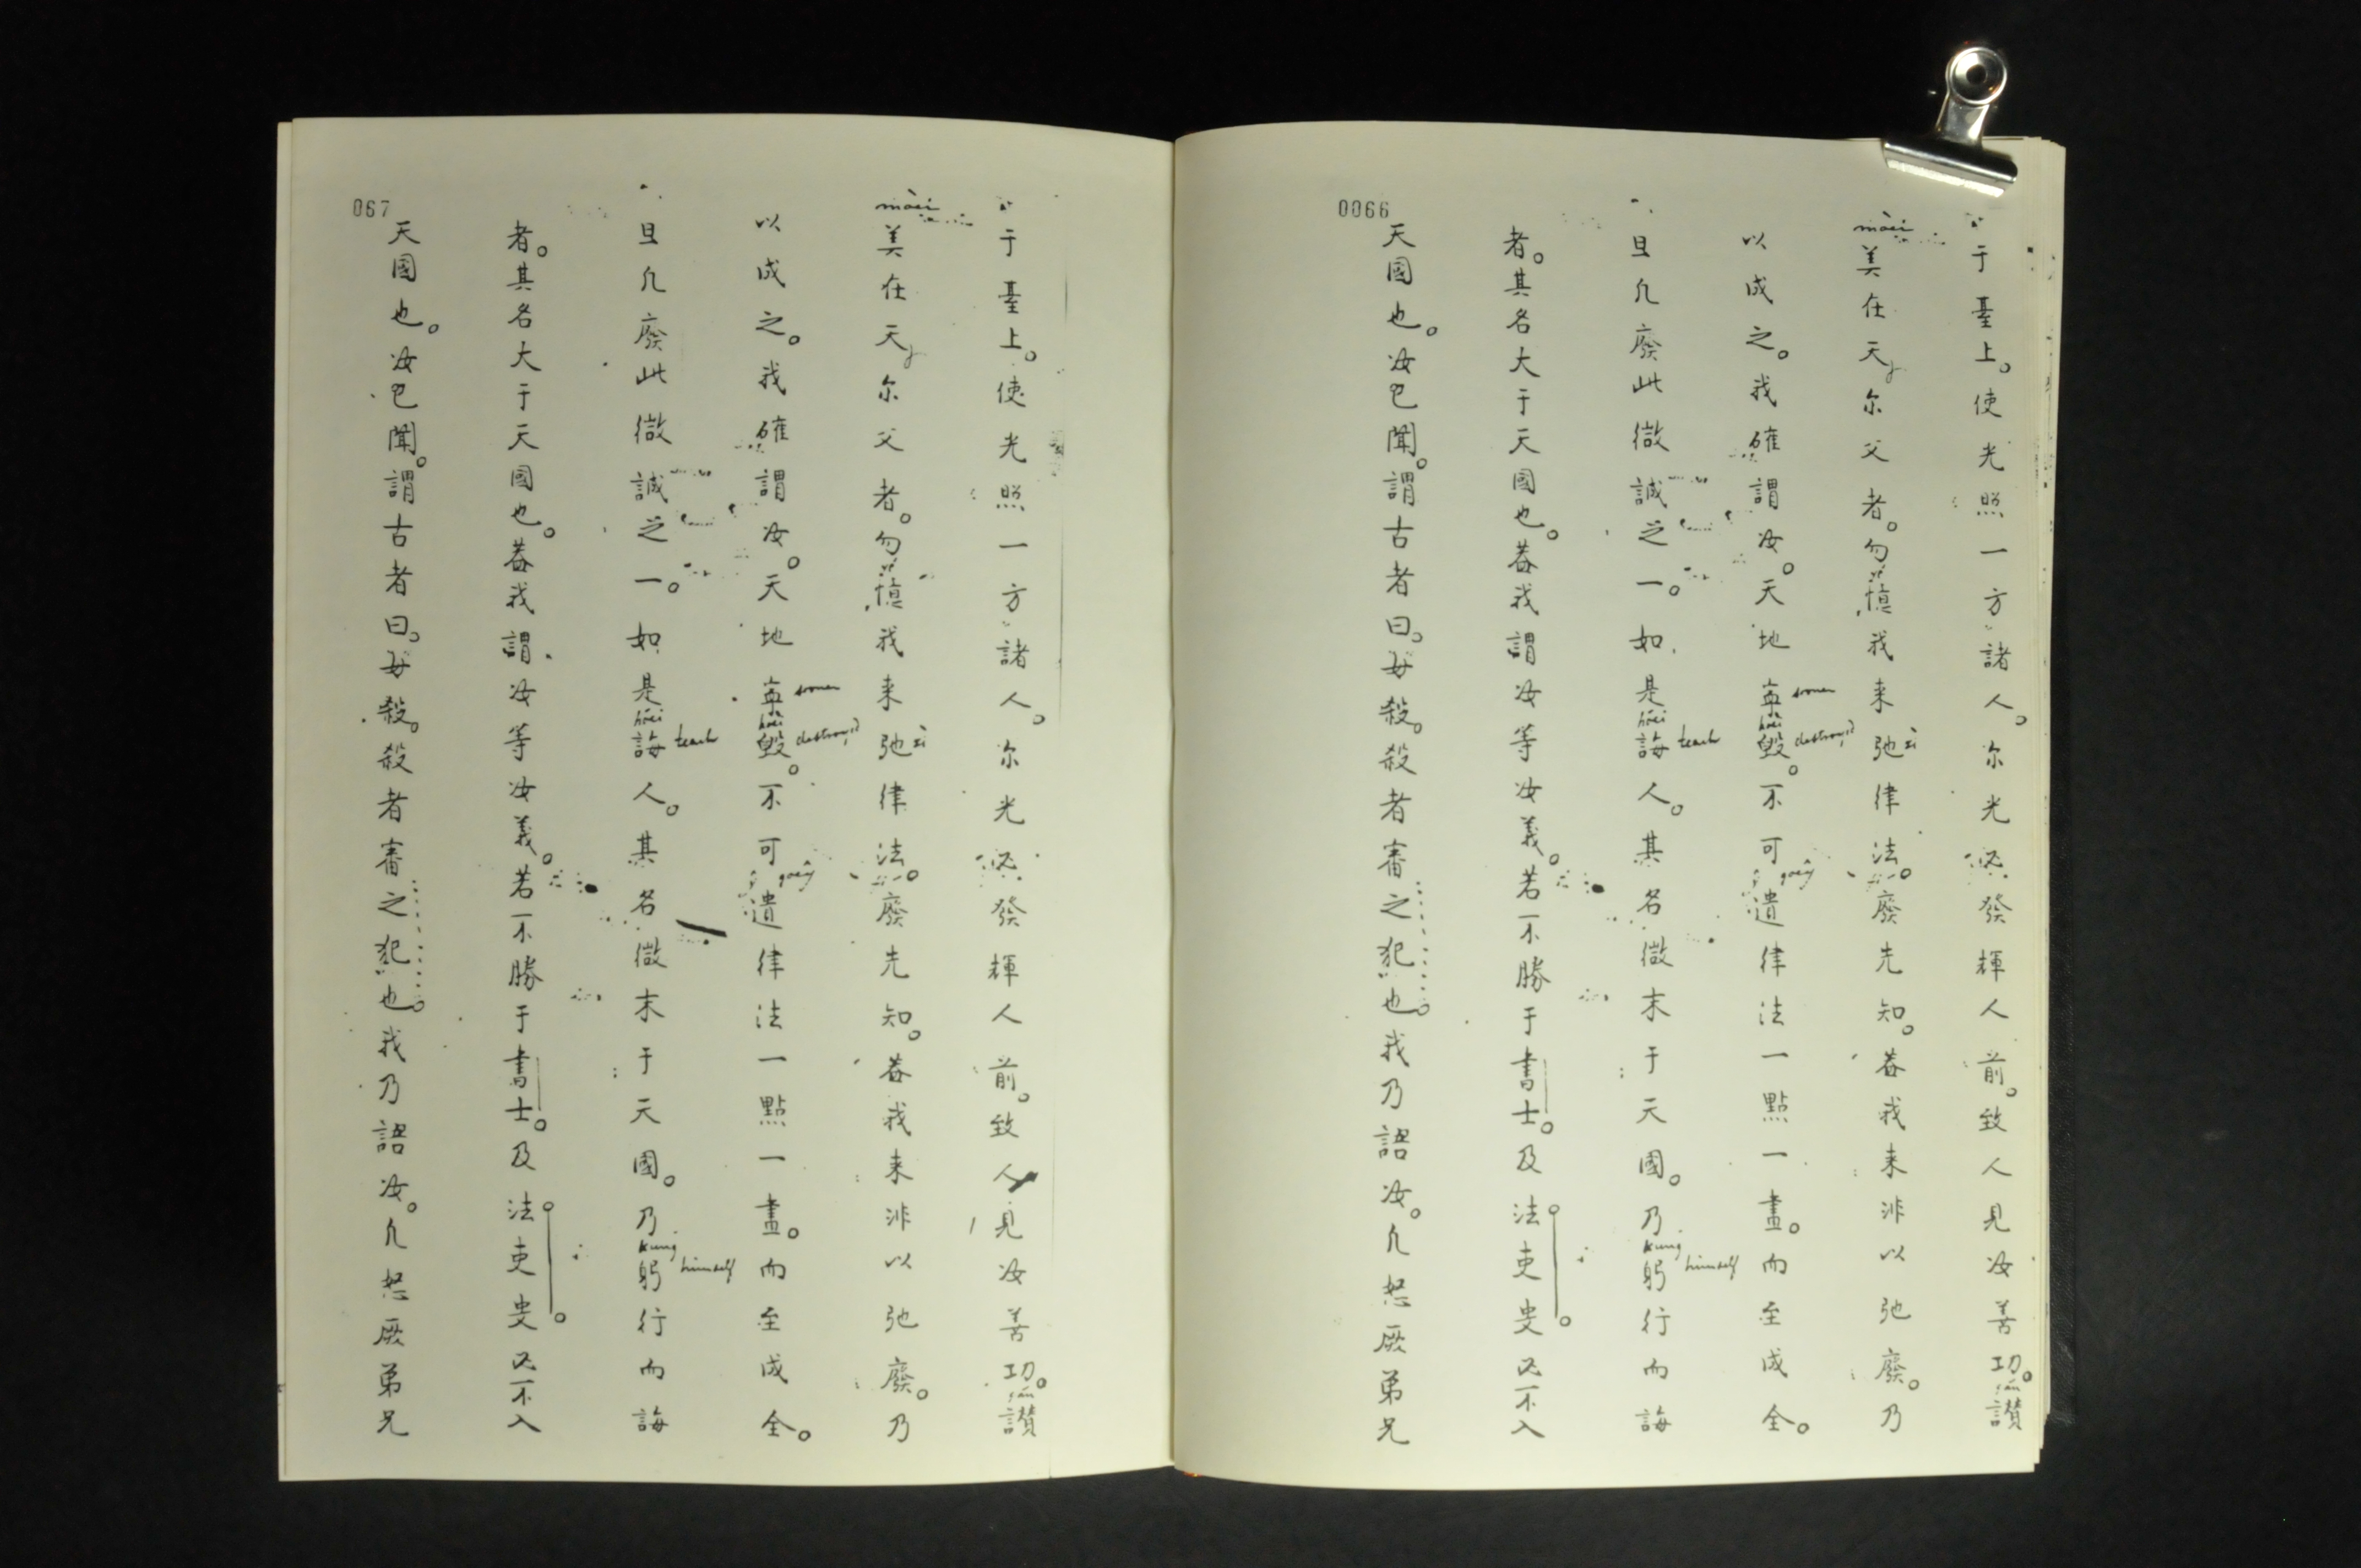 0066
于臺上。使光照一方諸人。尔光必發輝人前。致人見汝善功。讃
mòei
美在天尔父者。勿慎我来弛律法。廢先知。蓋我来非以弛廢。乃
以成之。我確謂汝。天地寧毀。不可遺律法一點一畫。而至成全。
sooner
hòei
destroyed
旦凢廢此微誡之一。如是誨人。其名微末于天國。乃躬行而誨
hóei
teach
kung
himself
者。其名大于天國也。蓋我謂汝等汝義。若不勝于書士。及法吏叓必不入
天國也。汝已聞。謂古者曰。毋殺。殺者審之犯也我乃語汝。凢怒厥弟兄
067
于臺上。使光照一方諸人。尔光必發輝人前。致人見汝善功。讃
mòei
美在天尔父者。勿慎我来弛律法。廢先知。蓋我来非以弛廢。乃
以成之。我確謂汝。天地寧毀。不可遺律法一點一畫。而至成全。
sooner
hòei
destroyed
旦凢廢此微誡之一。如是誨人。其名微末于天國。乃躬行而誨
hóei
teach
kung
himself
者。其名大于天國也。蓋我謂汝等汝義。若不勝于書士。及法吏叓必不入
天國也。汝已聞。謂古者曰。毋殺。殺者審之犯也我乃語汝。凢怒厥弟兄